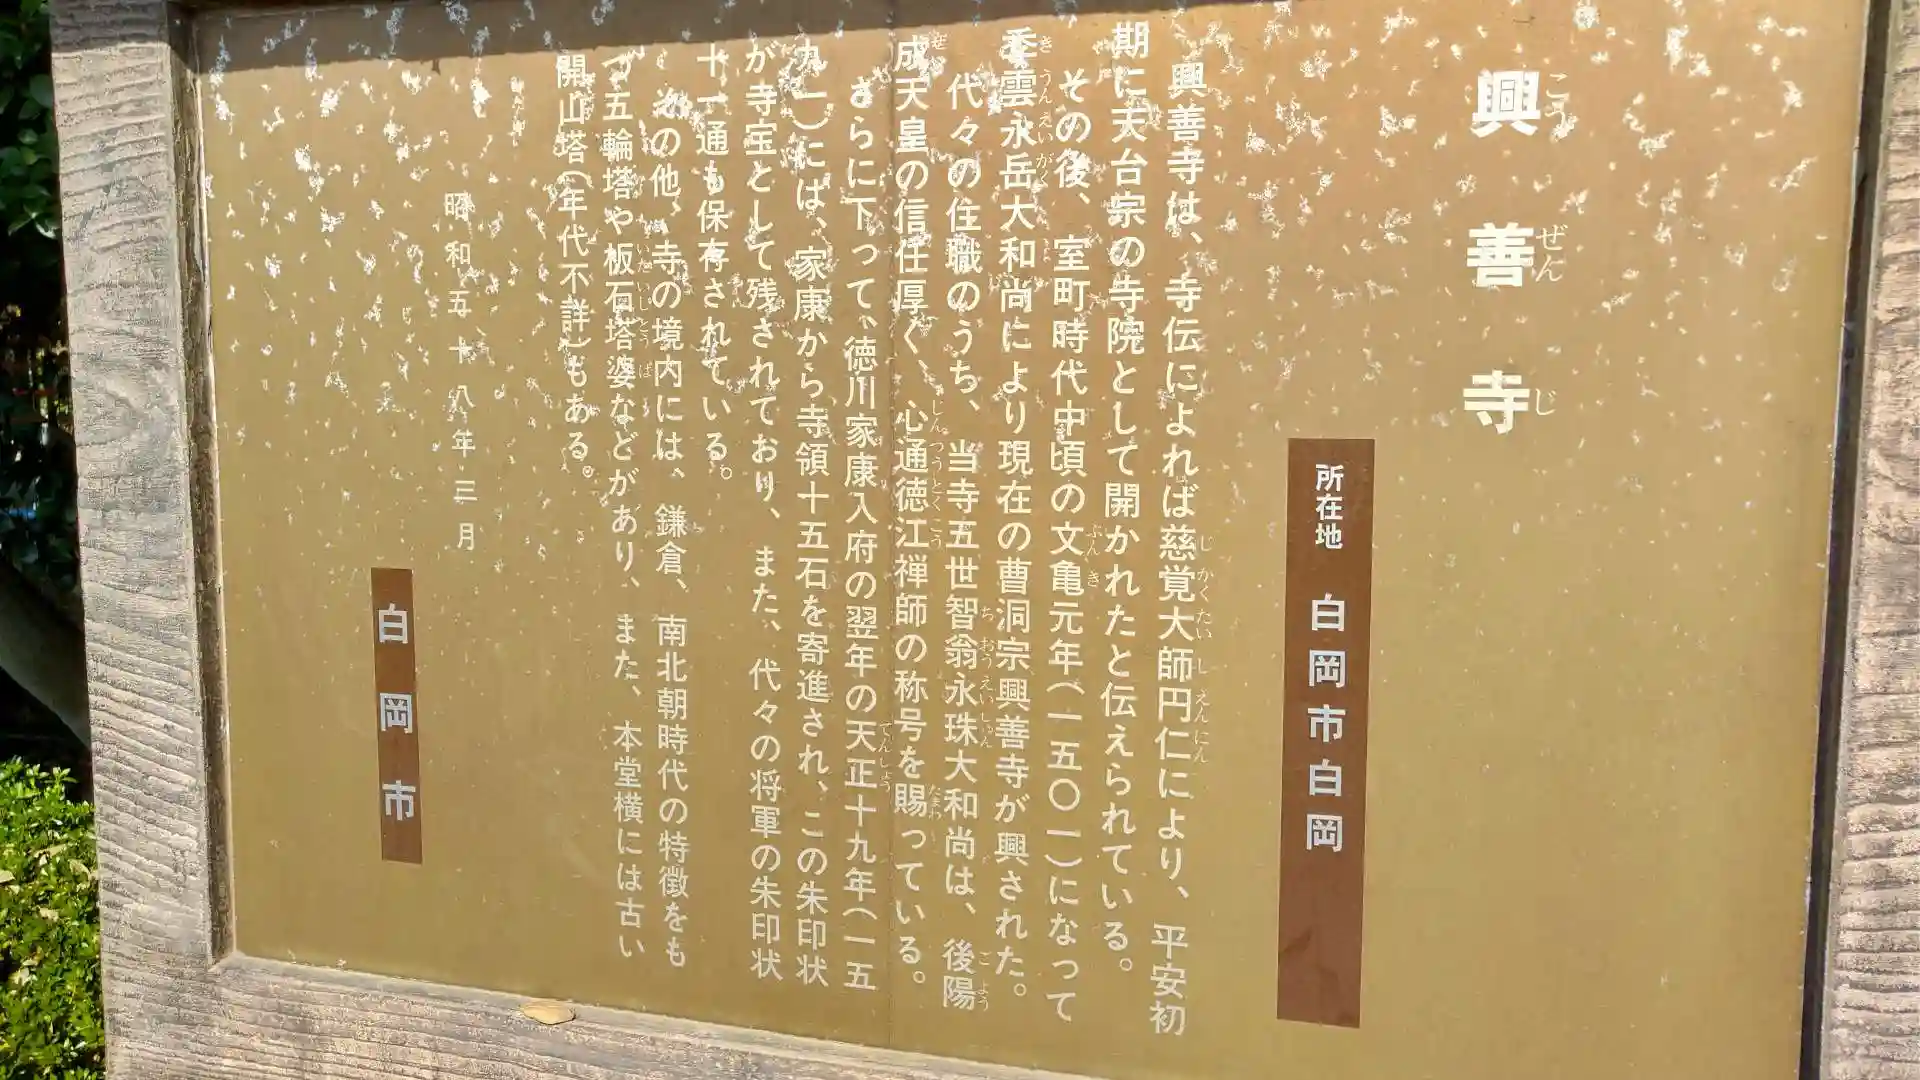 興善寺
こうぜんじ
所在地　白岡市白岡
興善寺は、寺伝によれば慈覚大師円仁により、平安初
じかくたいしえんにん
期に天台宗の寺院として開かれたと伝えられている。
その後、室町時代中頃の文亀元年(一五〇一)になって
ぶんき
季雲永岳大和尚により現在の曹洞宗興善寺が興された。
きうんえいがく
代々の住職のうち、当寺五世智翁永珠大和尚は、後陽
ちおうえいしゅん
ごよう
成天皇の信任厚く、心通徳江禅師の称号を賜っている。
ぜい
しんつうとくこう
たまわ
さらに下って、徳川家康入府の翌年の天正十九年(一五
てんしょう
九一)には、家康から寺領十五石を寄進され、この朱印状
が寺宝として残されており、また、代々の将軍の朱印状
十一通も保存されている。
その他、寺の境内には、鎌倉、南北朝時代の特徴をも
つ五輪塔や板石塔婆などがあり、また、本堂横には古い
いたいしとうば
開山塔(年代不詳)もある。
昭和五十八年三月
白岡市